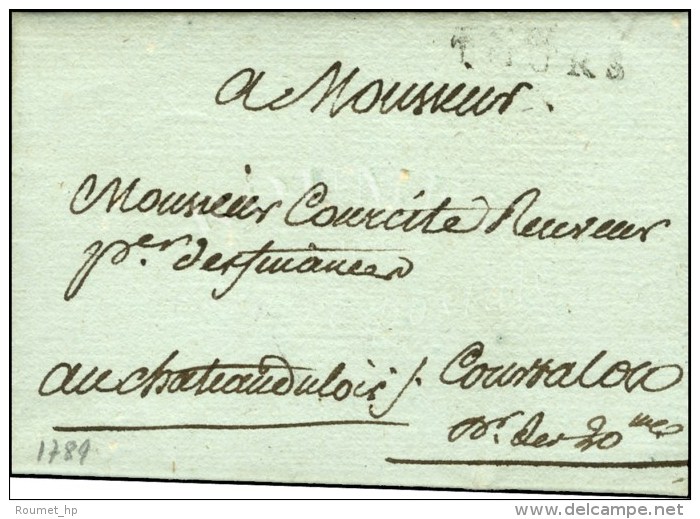 TOURS
a Monsieur
Monsieur Courcité Receveur
per des finances
au chateauduloir /.
Coursalon
pr. des 20mes
1789
Roumet_hp
www.delcampe.net